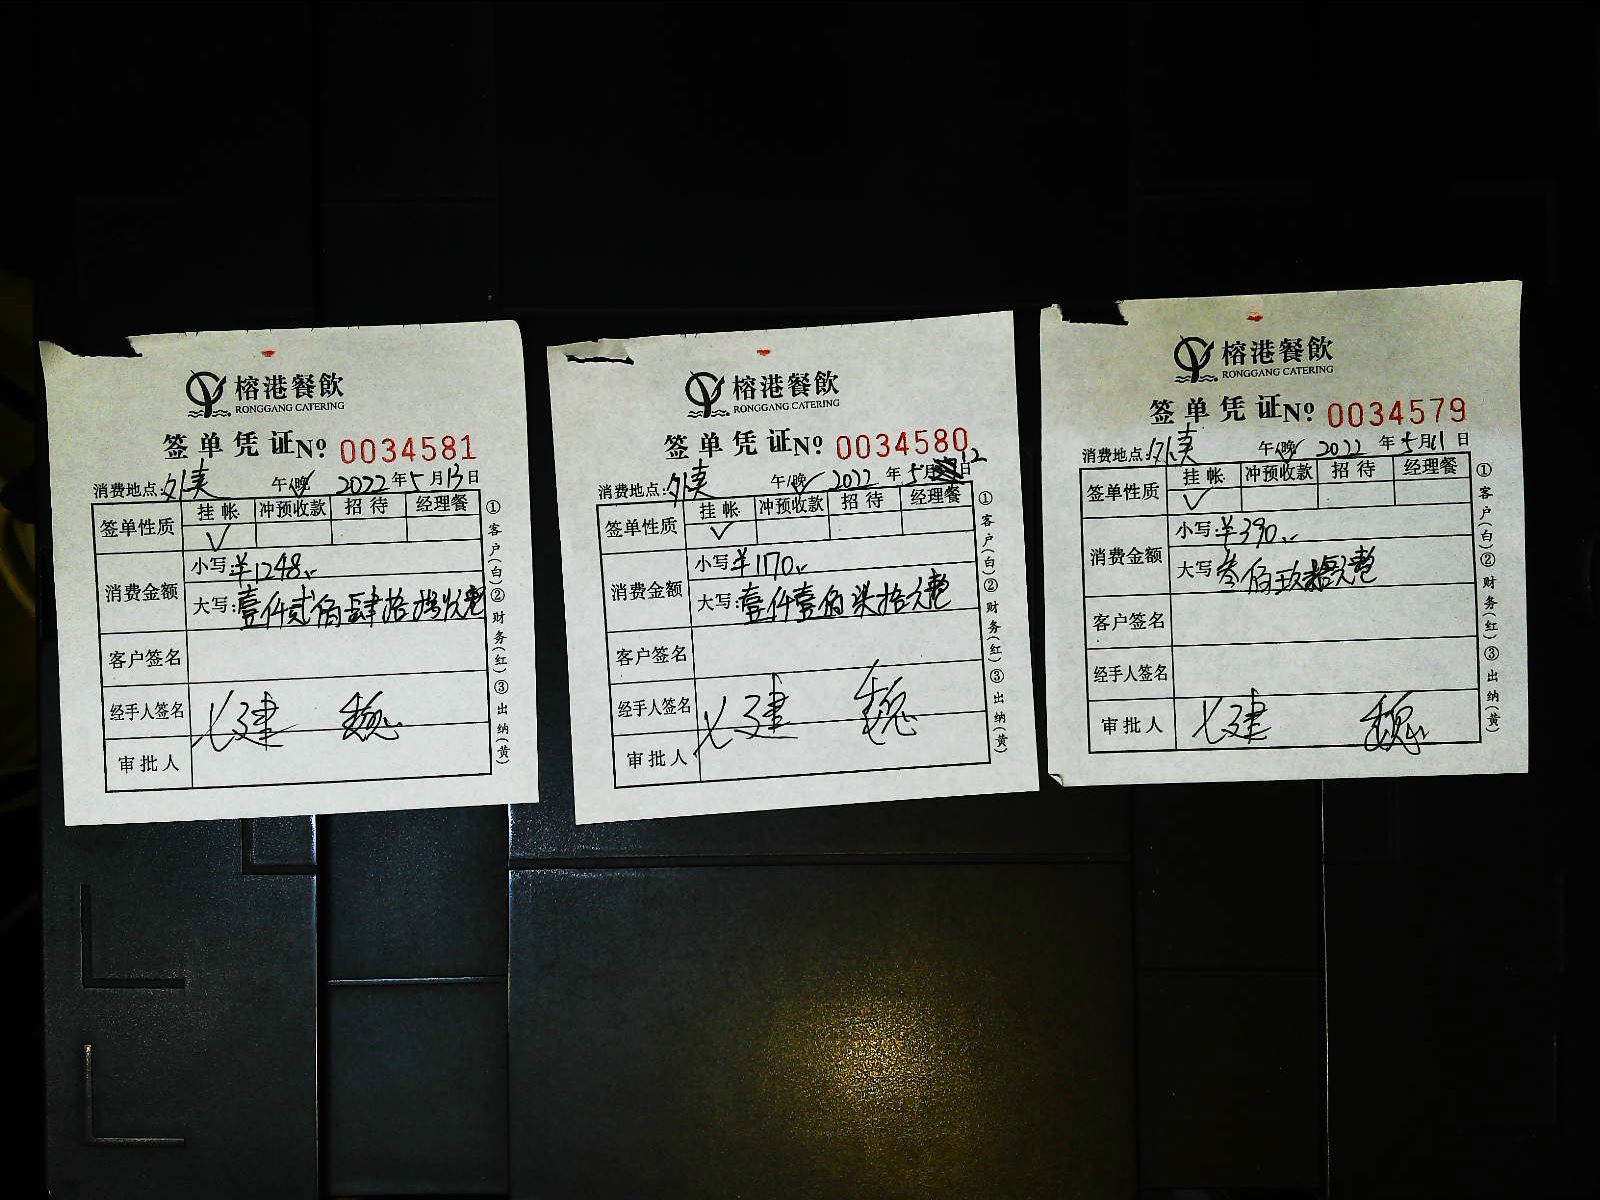 榕港餐飲
RONGGANG CATERING
签单凭证 № 0034581
消费地点: 午/晚 2022年5月13日
签单性质 挂帐 冲预收款 招待 经理餐
✓
消费金额 小写:¥1248
大写:壹仟贰佰肆拾捌元整
客户签名
经手人签名 建 魏
审批人
①客户(白)②财务(红)③出纳(黄)
榕港餐飲
RONGGANG CATERING
签单凭证 № 0034580
消费地点: 午/晚 2022年5月12日
签单性质 挂帐 冲预收款 招待 经理餐
✓
消费金额 小写:¥1170
大写:壹仟壹佰柒拾元整
客户签名
经手人签名 建 魏
审批人
①客户(白)②财务(红)③出纳(黄)
榕港餐飲
RONGGANG CATERING
签单凭证 № 0034579
消费地点: 午/晚 2022年5月11日
签单性质 挂帐 冲预收款 招待 经理餐
✓
消费金额 小写:¥390
大写:叁佰玖拾元整
客户签名
经手人签名
审批人 建 魏
①客户(白)②财务(红)③出纳(黄)